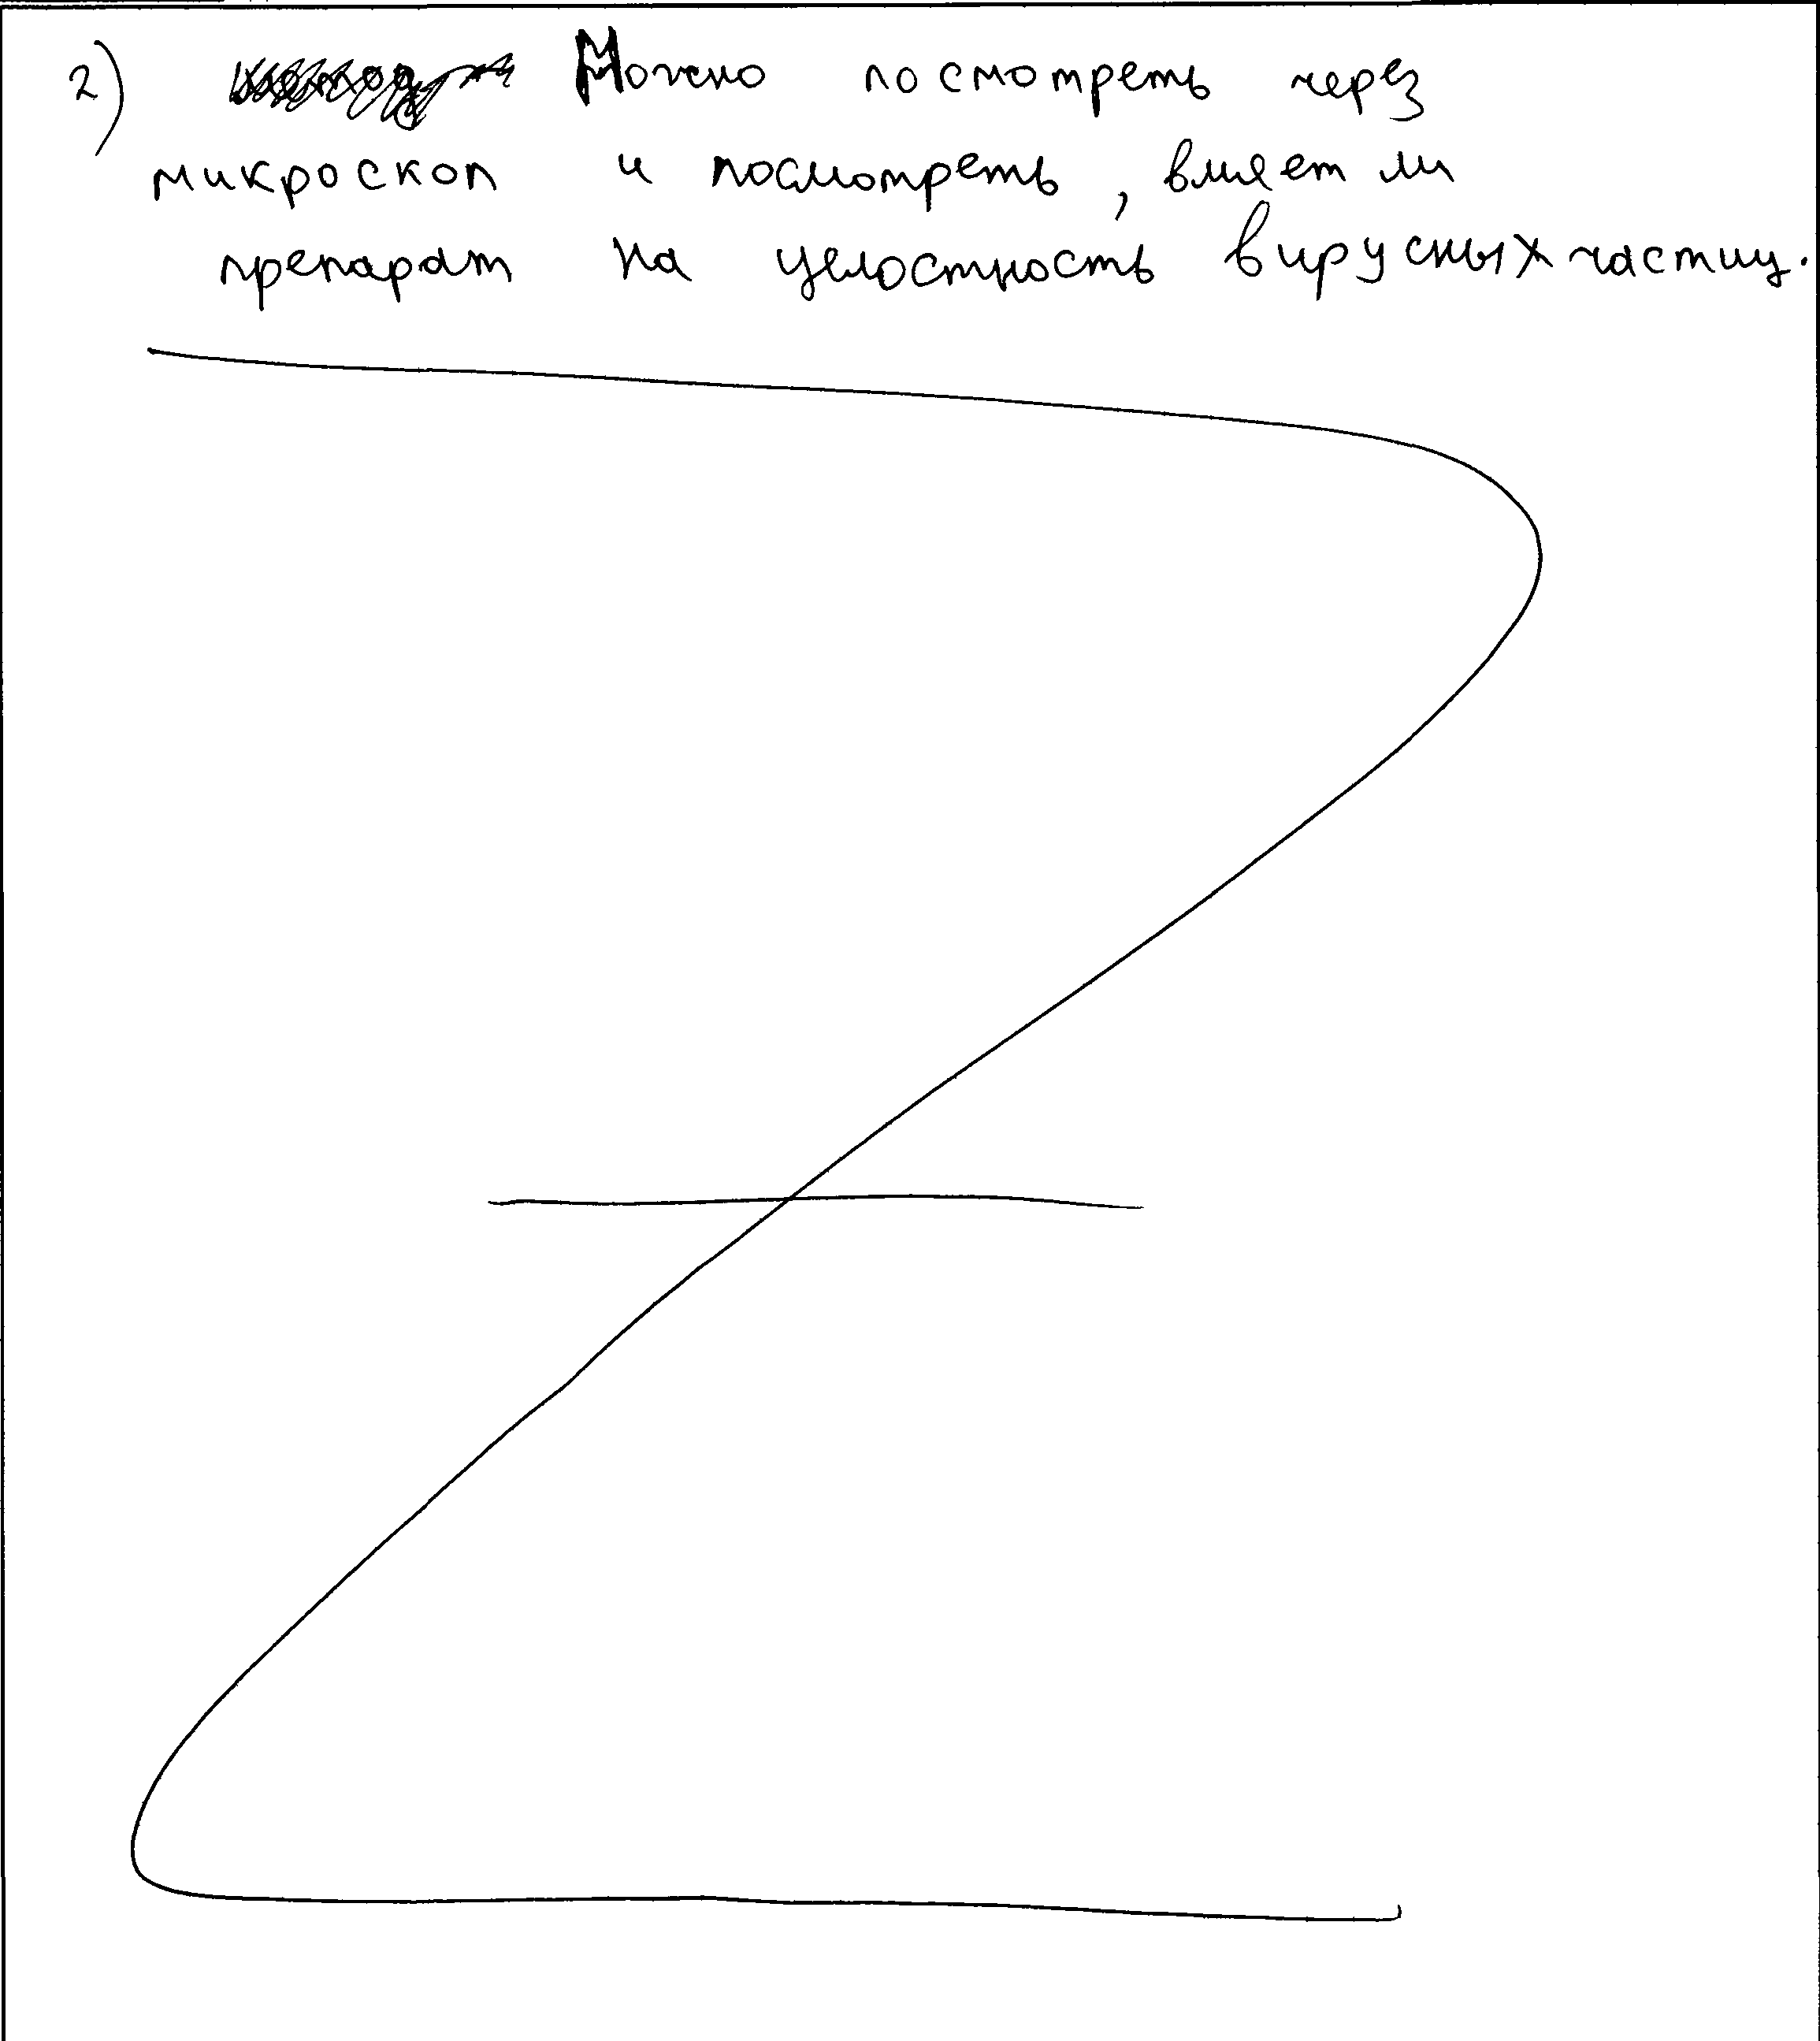 2) Можно посмотреть через
микроскоп и посмотреть, влияет ли
препарат на целостность вирусных частиц.